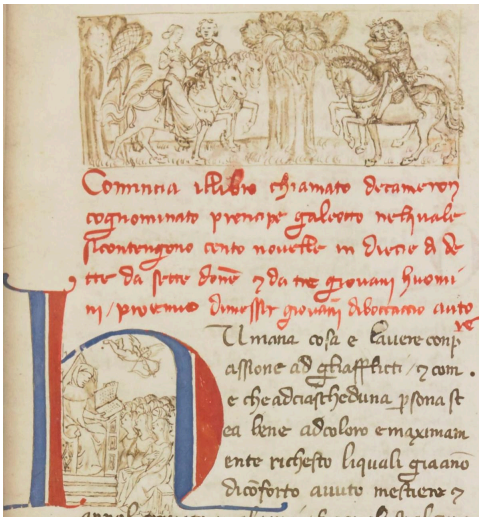 Comincia illibro chiamato decameron
cognominato prencipe galeotto nelquale
sicontengono cento novelle in diece dì de
tte da sette donē ⁊ da tre giovani huomi
ni / proemio dimesser giovanī diboccaccio auto
re
Umana cosa e lavere conp
assione ad gliafflicti / ⁊ com .
e che adciascheduna ꝑsona st
ea bene adcoloro e maximam
ente richesto liquali gia āno
dicōforto avuto mestiere ⁊